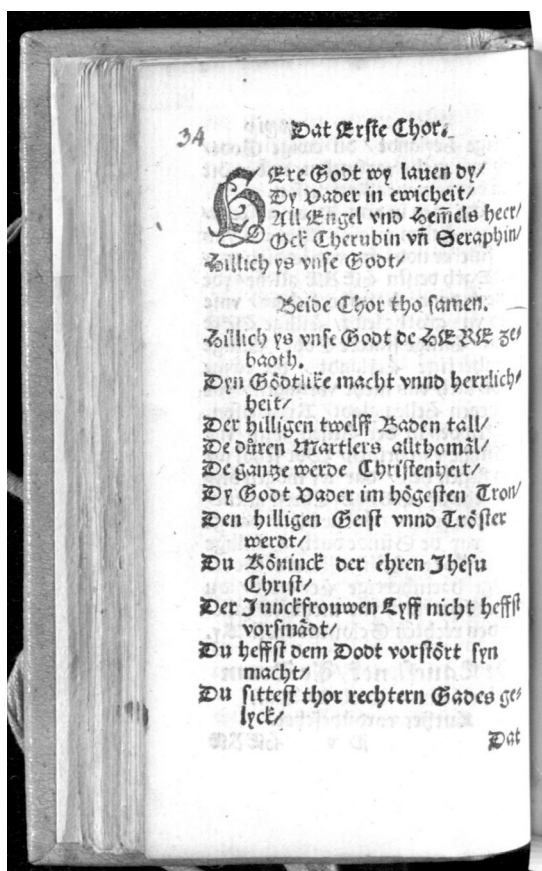 34
Dat Erste Chor.
HEre Godt wy lauen dy/
Dy Vader in ewicheit/
All Engel vnd Hem̄els heer/
Ock Cherubin vn̄ Seraphin/
Hillich ys vnse Godt/
Beide Chor tho samen.
Hillich ys vnse Godt de HERE Ze⸗
baoth.
Dyn Gödtlike macht vnnd herrlich⸗
heit/
Der hilligen twelff Baden tall/
De düren Martlers allthomäl/
De gantze werde Christenheit/
Dy Godt Vader im högesten Tron/
Den hilligen Geist vnnd Tröster
werdt/
Du Köninck der ehren Jhesu
Christ/
Der Junckfrouwen Lyff nicht heffst
vorsmädt/
Du heffst dem Dodt vorstört syn
macht/
Du sittest thor rechtern Gades ge⸗
lyck/
Dat